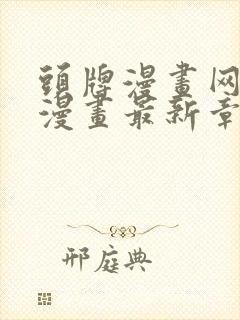 頭牌漫畫网
漫畫最新章
邢庭典